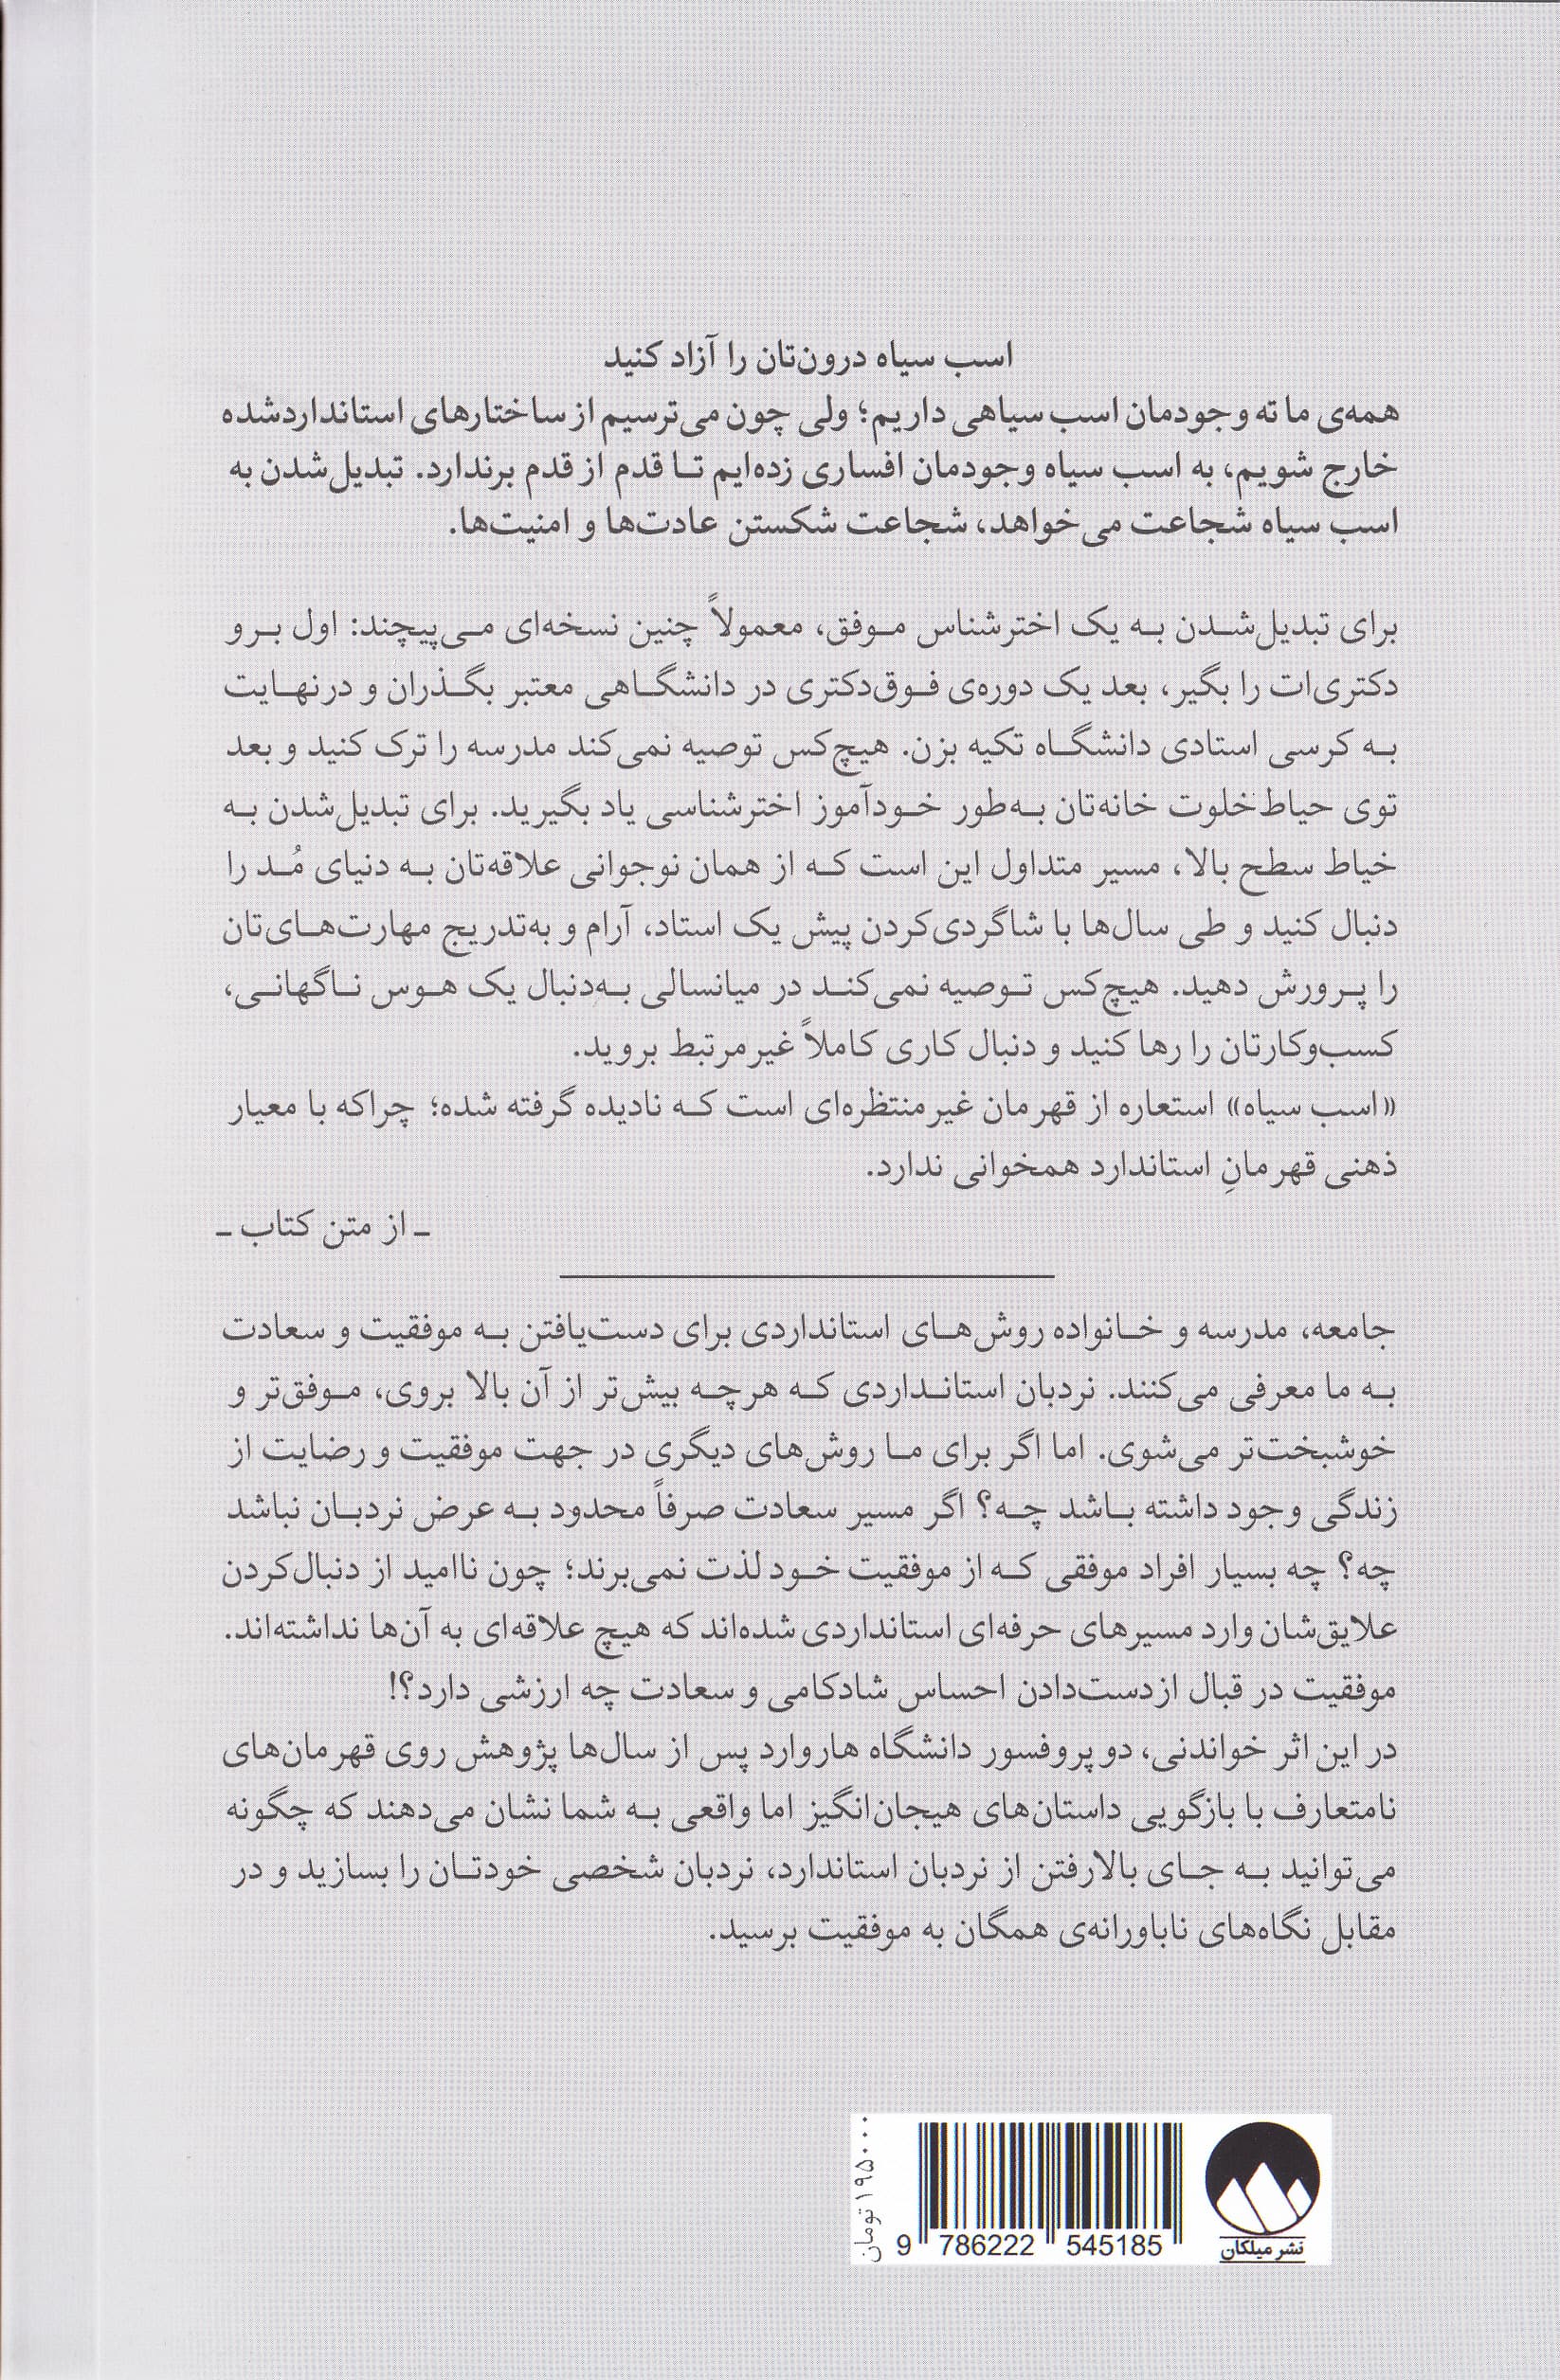 اسب سیاه درون‌تان را آزاد کنید
همه‌ی ما ته وجودمان اسب سیاهی داریم؛ ولی چون می‌ترسیم از ساختارهای استانداردشده
خارج شویم، به اسب سیاه وجودمان افساری زده‌ایم تا قدم از قدم برندارد. تبدیل‌شدن به
اسب سیاه شجاعت می‌خواهد، شجاعت شکستن عادت‌ها و امنیت‌ها.
برای تبدیل‌شدن به یک اخترشناس موفق، معمولاً چنین نسخه‌ای می‌پیچند: اول برو
دکتری‌ات را بگیر، بعد یک دوره‌ی فوق‌دکتری در دانشگاهی معتبر بگذران و درنهایت
به کرسی استادی دانشگاه تکیه بزن. هیچ‌کس توصیه نمی‌کند مدرسه را ترک کنید و بعد
توی حیاط‌خلوت خانه‌تان به‌طور خودآموز اخترشناسی یاد بگیرید. برای تبدیل‌شدن به
خیاط سطح بالا، مسیر متداول این است که از همان نوجوانی علاقه‌تان به دنیای مُد را
دنبال کنید و طی سال‌ها با شاگردی‌کردن پیش یک استاد، آرام و به‌تدریج مهارت‌های‌تان
را پرورش دهید. هیچ‌کس توصیه نمی‌کند در میانسالی به‌دنبال یک هوس ناگهانی،
کسب‌وکارتان را رها کنید و دنبال کاری کاملاً غیرمرتبط بروید.
«اسب سیاه» استعاره از قهرمان غیرمنتظره‌ای است که نادیده گرفته شده؛ چراکه با معیار
ذهنی قهرمانِ استاندارد همخوانی ندارد.
ـ از متن کتاب ـ
جامعه، مدرسه و خانواده روش‌های استانداردی برای دست‌یافتن به موفقیت و سعادت
به ما معرفی می‌کنند. نردبان استانداردی که هرچه بیش‌تر از آن بالا بروی، موفق‌تر و
خوشبخت‌تر می‌شوی. اما اگر برای ما روش‌های دیگری در جهت موفقیت و رضایت از
زندگی وجود داشته باشد چه؟ اگر مسیر سعادت صرفاً محدود به عرض نردبان نباشد
چه؟ چه بسیار افراد موفقی که از موفقیت خود لذت نمی‌برند؛ چون ناامید از دنبال‌کردن
علایق‌شان وارد مسیرهای حرفه‌ای استانداردی شده‌اند که هیچ علاقه‌ای به آن‌ها نداشته‌اند.
موفقیت در قبال ازدست‌دادن احساس شادکامی و سعادت چه ارزشی دارد؟!
در این اثر خواندنی، دو پروفسور دانشگاه هاروارد پس از سال‌ها پژوهش روی قهرمان‌های
نامتعارف با بازگویی داستان‌های هیجان‌انگیز اما واقعی به شما نشان می‌دهند که چگونه
می‌توانید به جای بالارفتن از نردبان استاندارد، نردبان شخصی خودتان را بسازید و در
مقابل نگاه‌های ناباورانه‌ی همگان به موفقیت برسید.
نشر میلکان
9 786222 545185
۱۹۵۰۰۰ تومان